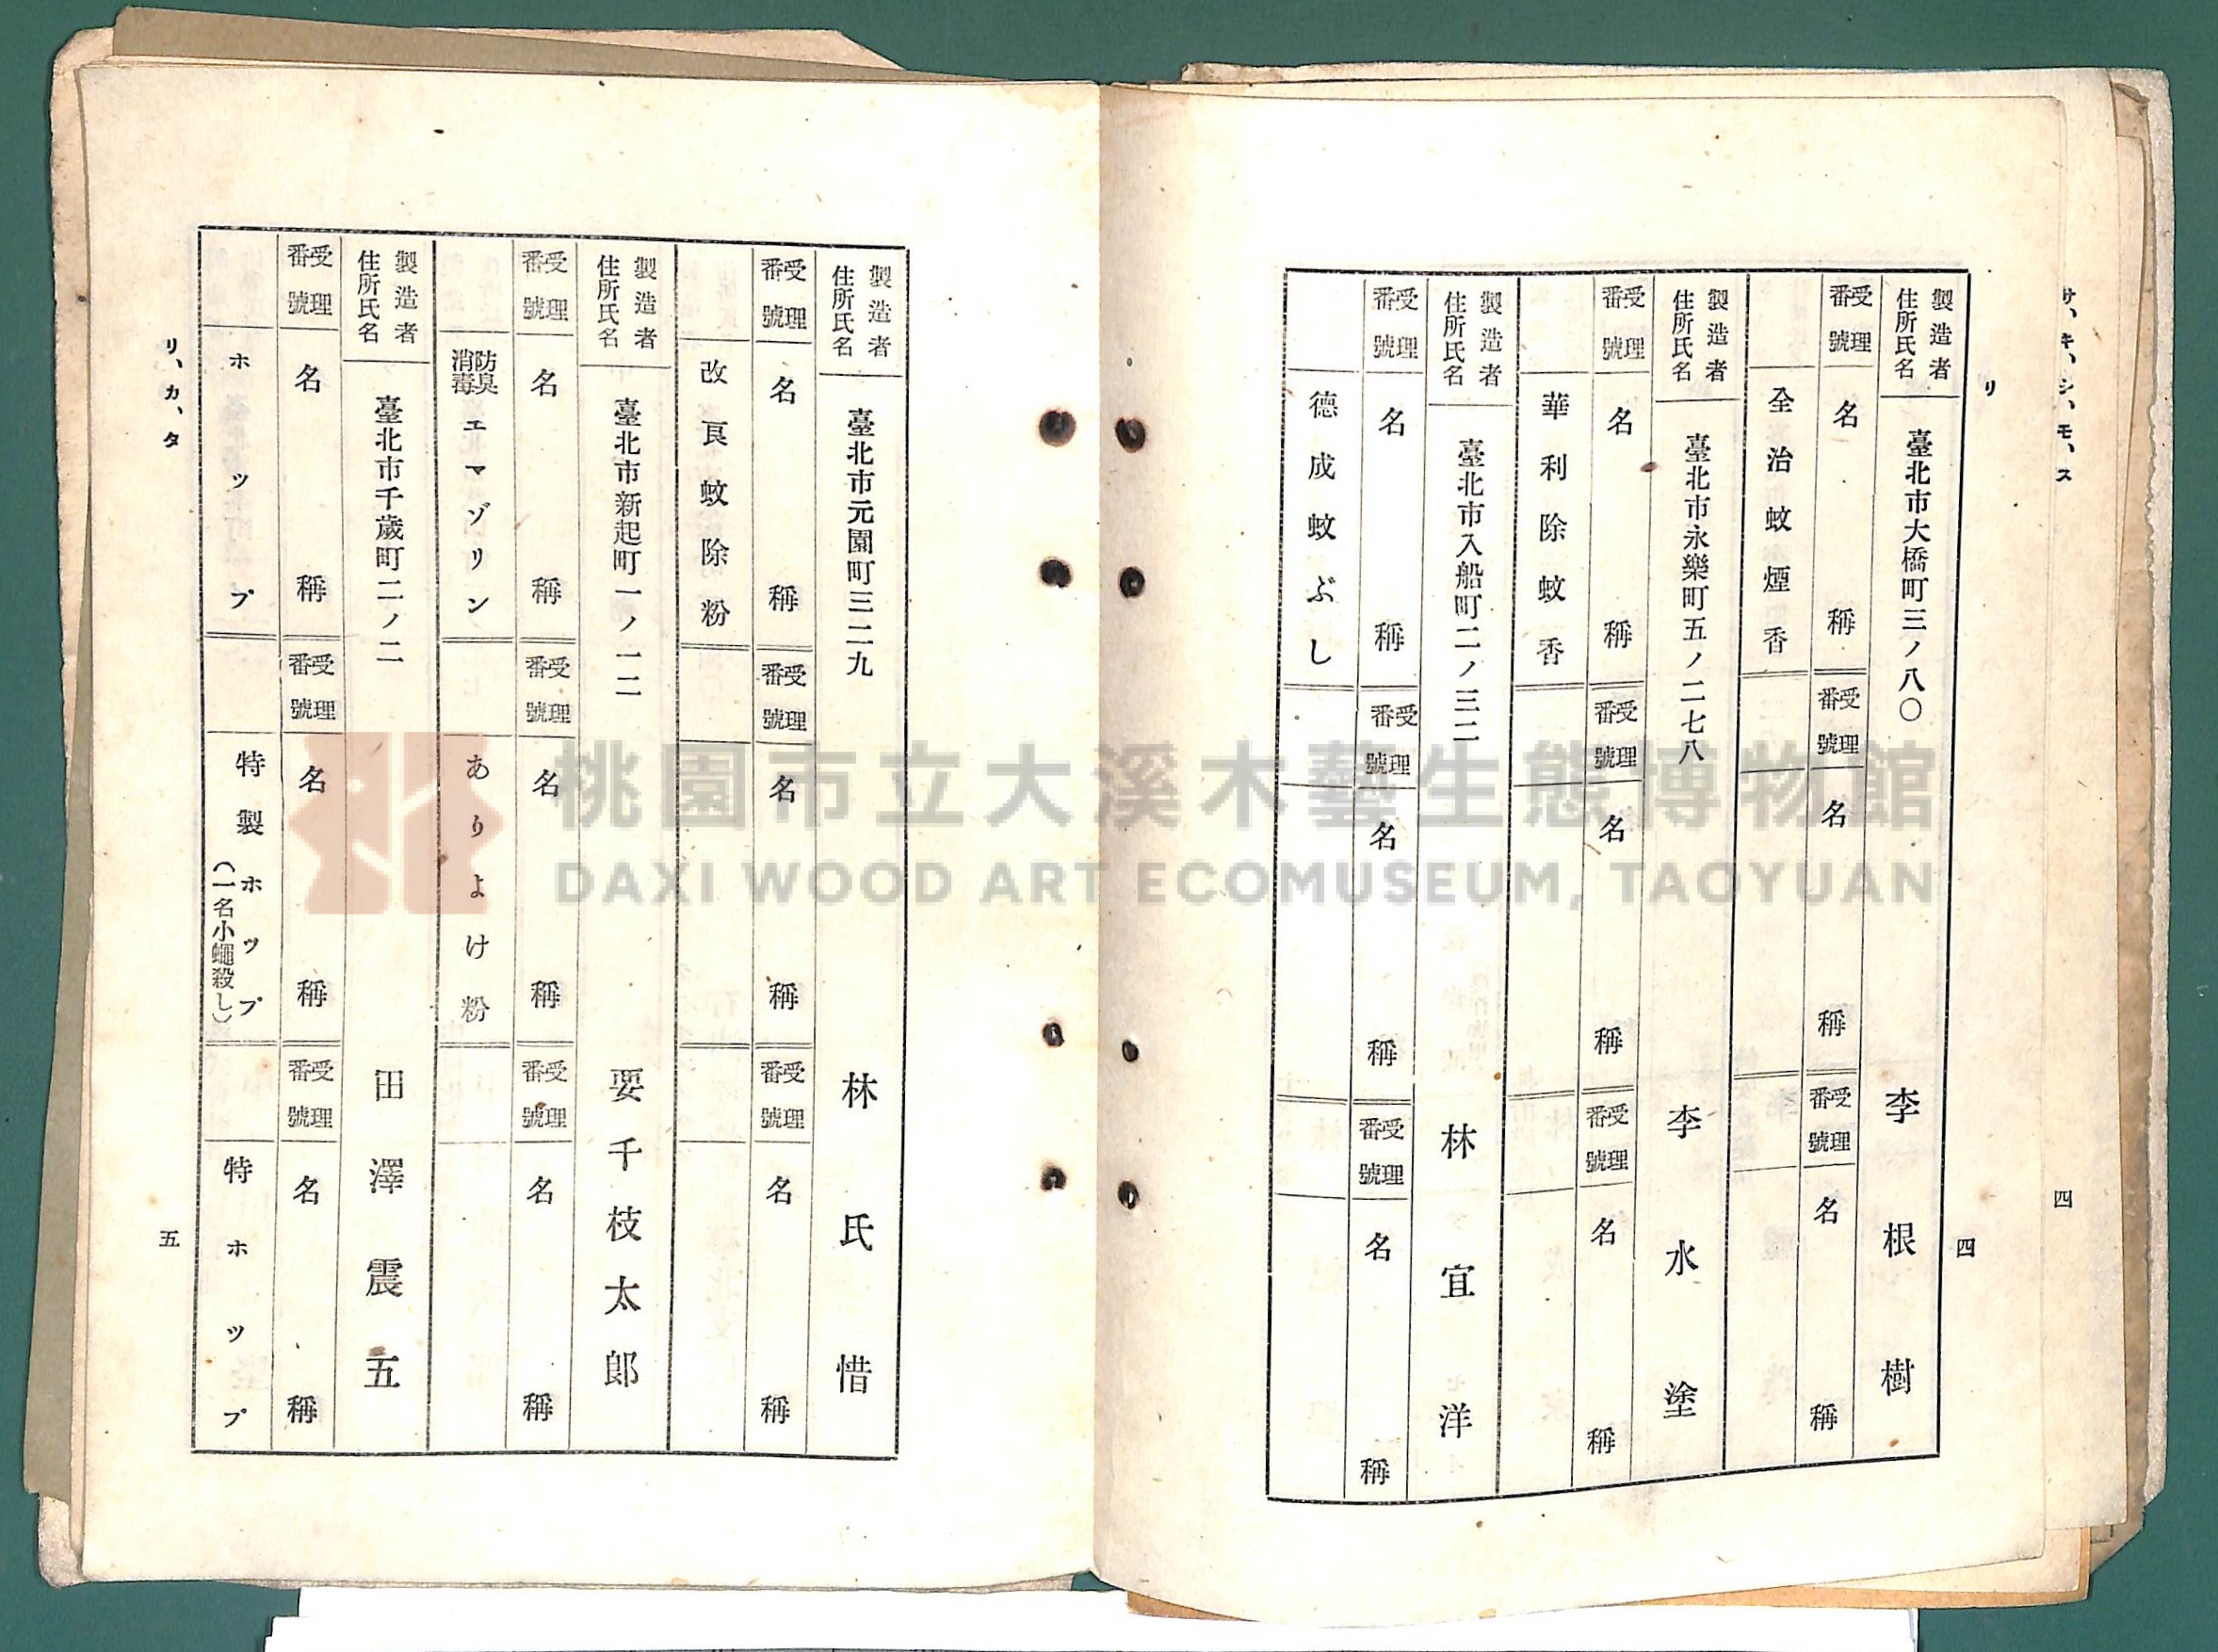 サ、キ、シ、モ、ス
四
リ
四
製造者
住所氏名
臺北市大橋町三ノ八〇
李根樹
受理
番號
名稱
受理
番號
名稱
受理
番號
名稱
全治蚊煙香
製造者
住所氏名
臺北市永樂町五ノ二七八
李水塗
受理
番號
名稱
受理
番號
名稱
受理
番號
名稱
華利除蚊香
製造者
住所氏名
臺北市入船町二ノ三二
林宜洋
受理
番號
名稱
受理
番號
名稱
受理
番號
名稱
德成蚊ぶし
製造者
住所氏名
臺北市元園町三二九
林氏惜
受理
番號
名稱
受理
番號
名稱
受理
番號
名稱
改良蚊除粉
製造者
住所氏名
臺北市新起町一ノ一二
要千枝太郎
受理
番號
名稱
受理
番號
名稱
受理
番號
名稱
防臭
消毒
エマゾリン
ありよけ粉
製造者
住所氏名
臺北市千歲町二ノ二
田澤震五
受理
番號
名稱
受理
番號
名稱
受理
番號
名稱
ホップ
特製ホップ
(一名小蠅殺し)
特ホップ
リ、カ、タ
五
桃園市立大溪木藝生態博物館
DAXI WOOD ART ECOMUSEUM, TAOYUAN